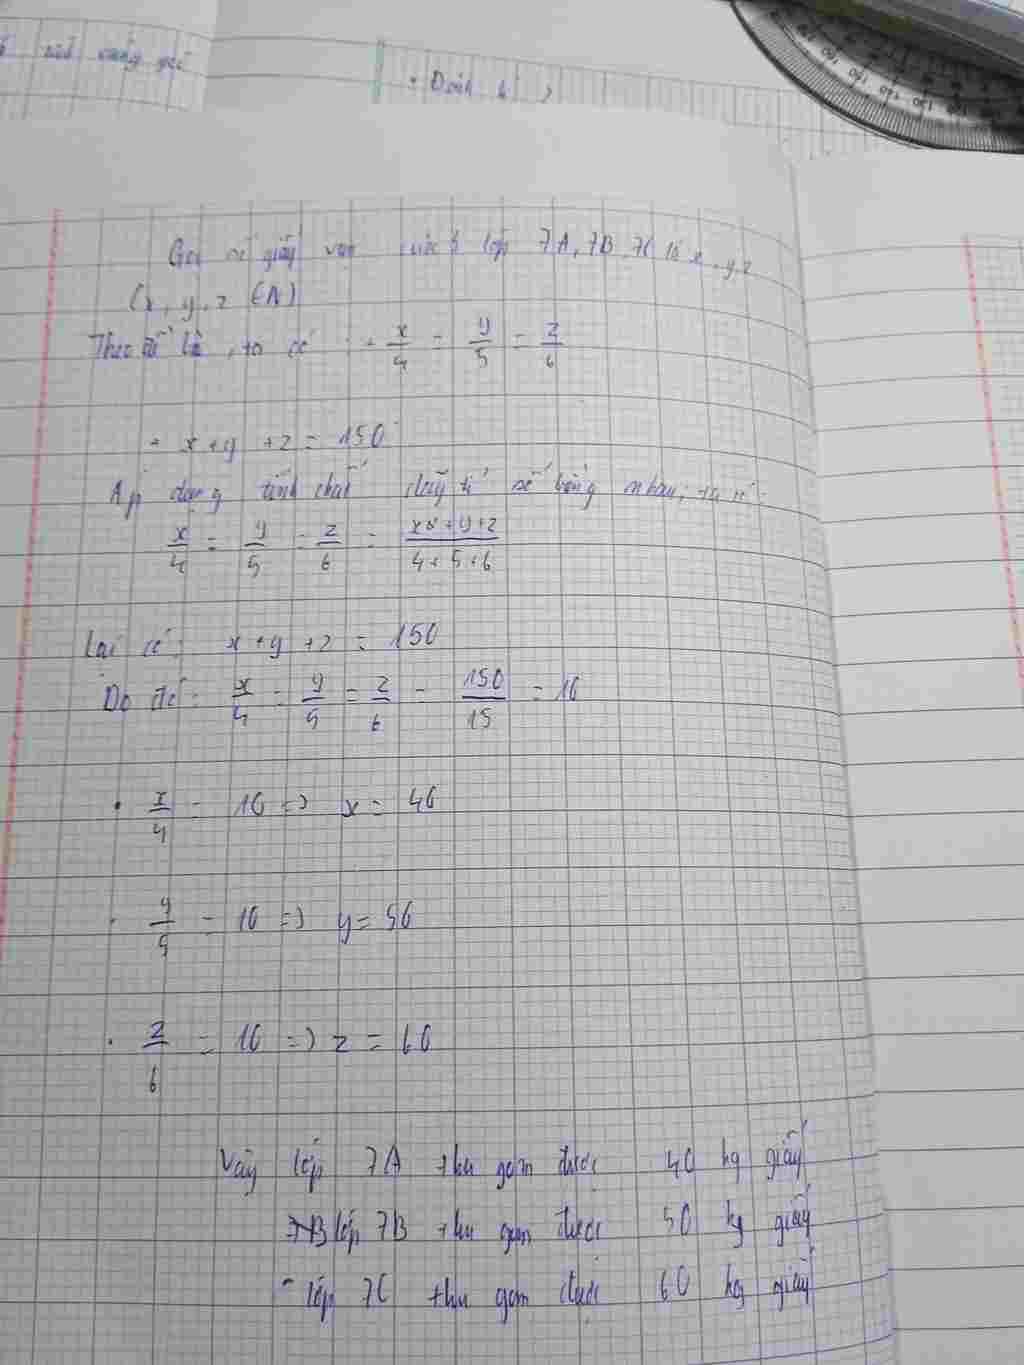 : Đoán
Gọi số giấy vụn của 3 lớp 7A, 7B, 7C là x, y, z
(x, y, z ∈ N)
Theo bài ra, ta có : + x/4 = y/5 = z/6
+ x + y + z = 150
Áp dụng tính chất dãy tỉ số bằng nhau, ta có :
x/4 = y/5 = z/6 = x + y + z / 4 + 5 + 6
Lại có: x + y + z = 150
Do đó: x/4 = y/5 = z/6 = 150/15 = 10
• x/4 = 10 => x = 40
• y/5 = 10 => y = 50
• z/6 = 10 => z = 60
Vậy lớp 7A thu gom được 40 kg giấy
lớp 7B thu gom được 50 kg giấy
- lớp 7C thu gom được 60 kg giấy